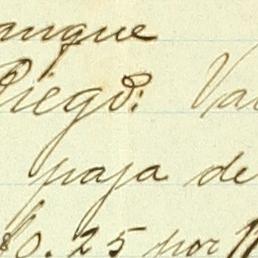 anque
Diego: Va
paja de
$0.25 por